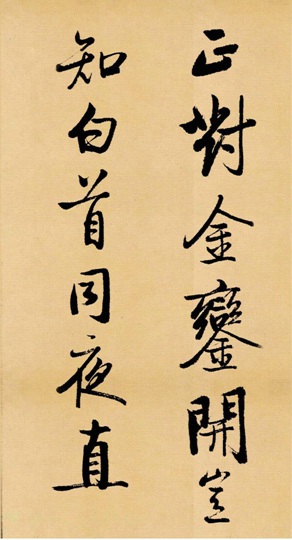 正對金鑾開豈
知白首同夜直